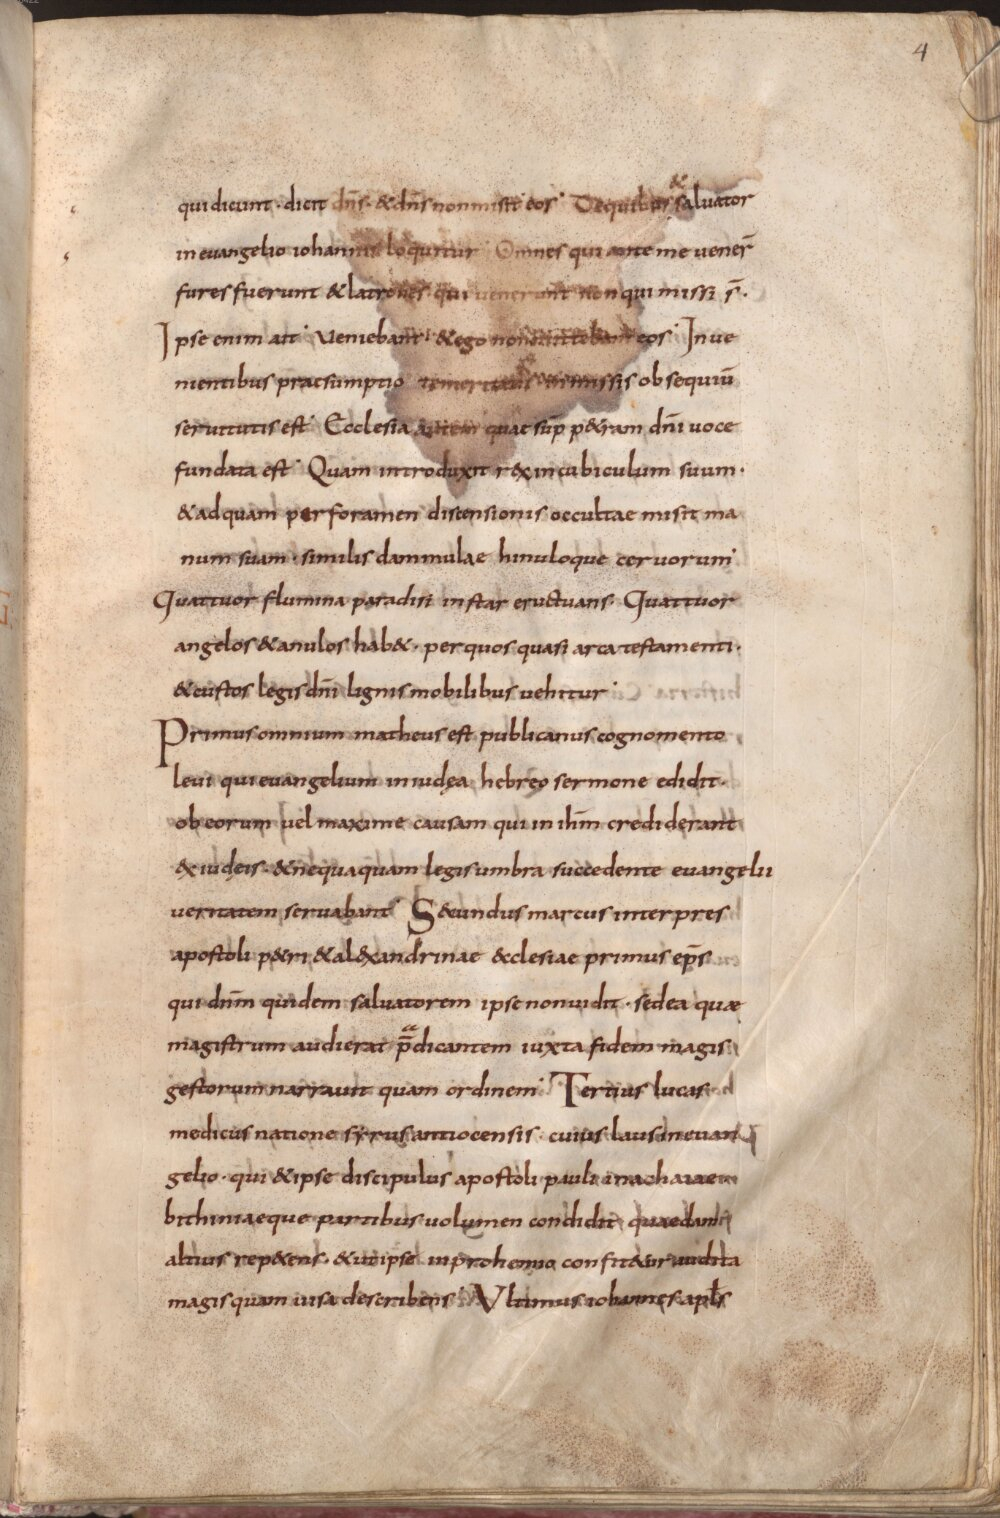 4
qui dicunt · dicit dn̄s · & dn̄s non misit eos · De quibus & salvator
in evangelio iohannis loquitur · Omnes qui ante me vener̄
fures fuerunt & latrones · qui venerunt non qui missi s̄ ·
Ipse enim ait · Veniebant · & ego non mittebam eos · In ve
nientibus praesumptio temeritatis in missis obsequiū
servitutis est · Ecclesia autem quae sup̄ p&ram dn̄i voce
fundata est · Quam introduxit rex in cubiculum suum ·
& ad quam per foramen discensionis occultae misit ma
num suam · similis dammulae hinuloque cervorum ·
Quattuor flumina paradisi instar eructuans · Quattuor
angelos & anulos hab& · per quos quasi arca testamenti ·
& custos legis dn̄i lignis mobilibus vehitur ·
Primus omnium matheus est publicanus cognomento
levi qui evangelium in iudęa hebręo sermone edidit ·
ob eorum vel maxime causam qui in ih̄m crediderant
ex iudęis · & nequaquam legis umbra succedente evangelii
veritatem servabant · S&cundus marcus interpres
apostoli p&ri & al&xandrinae &clesiae primus ep̄s
qui dn̄m quidem salvatorem ipse non vidit · sed ea quae
magistrum audierat p̄dicantem iuxta fidem magis
gestorum narravit quam ordinem · Tertius lucas
medicus natione syrus antiocensis · cuius laus in evan
gelio · qui & ipse discipulus apostoli pauli in achaiae
bithiniaeque partibus volumen condidit quaedam
altius rep&ens · & ut ipse in prohemio confit&ur audita
magis quam visa describens · Ultimus iohannes apl̄s